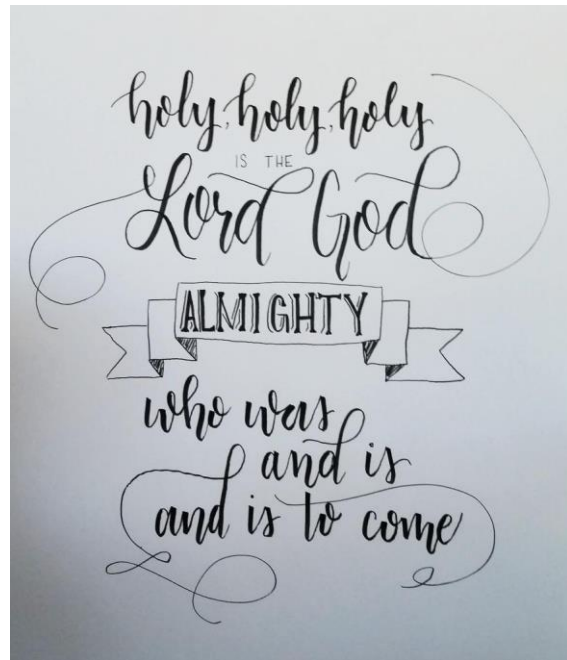 holy, holy, holy
IS THE
Lord God
ALMIGHTY
who was
and is
and is to come